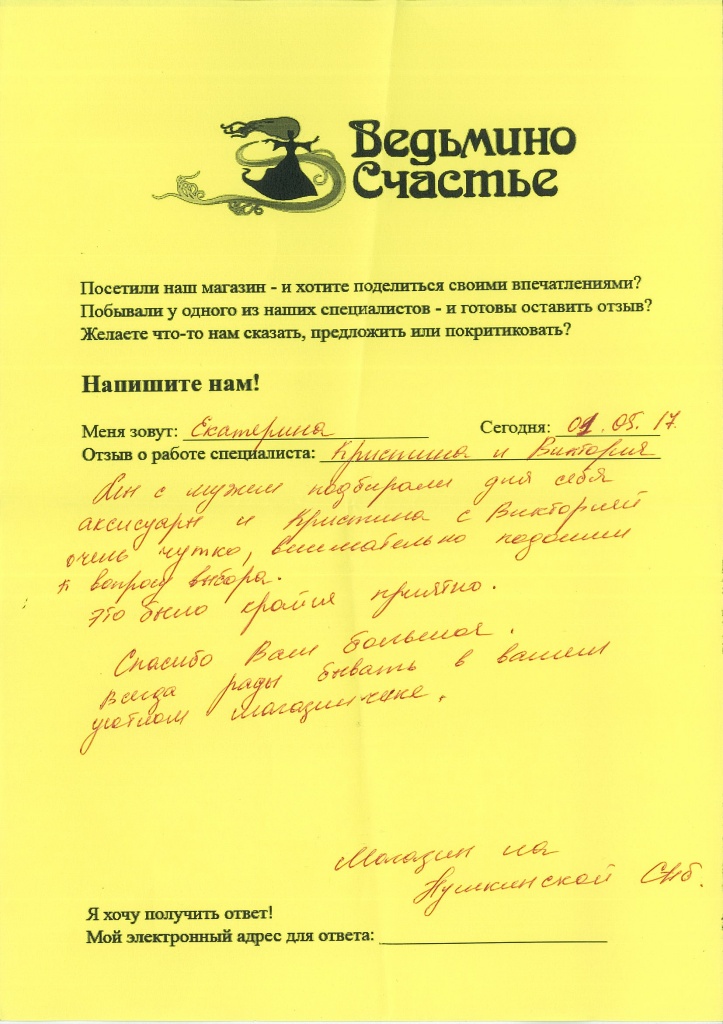 Ведьмино
Счастье
Посетили наш магазин - и хотите поделиться своими впечатлениями?
Побывали у одного из наших специалистов - и готовы оставить отзыв?
Желаете что-то нам сказать, предложить или покритиковать?
Напишите нам!
Меня зовут: Екатерина Сегодня: 01.05.17
Отзыв о работе специалиста: Кристина и Виктория
Мы с мужем подбирали для себя
аксесуары и Кристина с Викторией
очень чутко, внимательно подошли
к вопросу выбора.
Это было крайне приятно.
Спасибо Вам большое.
Всегда рады бывать в вашем
уютном магазинчике.
Магазин на
Пушкинской СПб.
Я хочу получить ответ!
Мой электронный адрес для ответа: